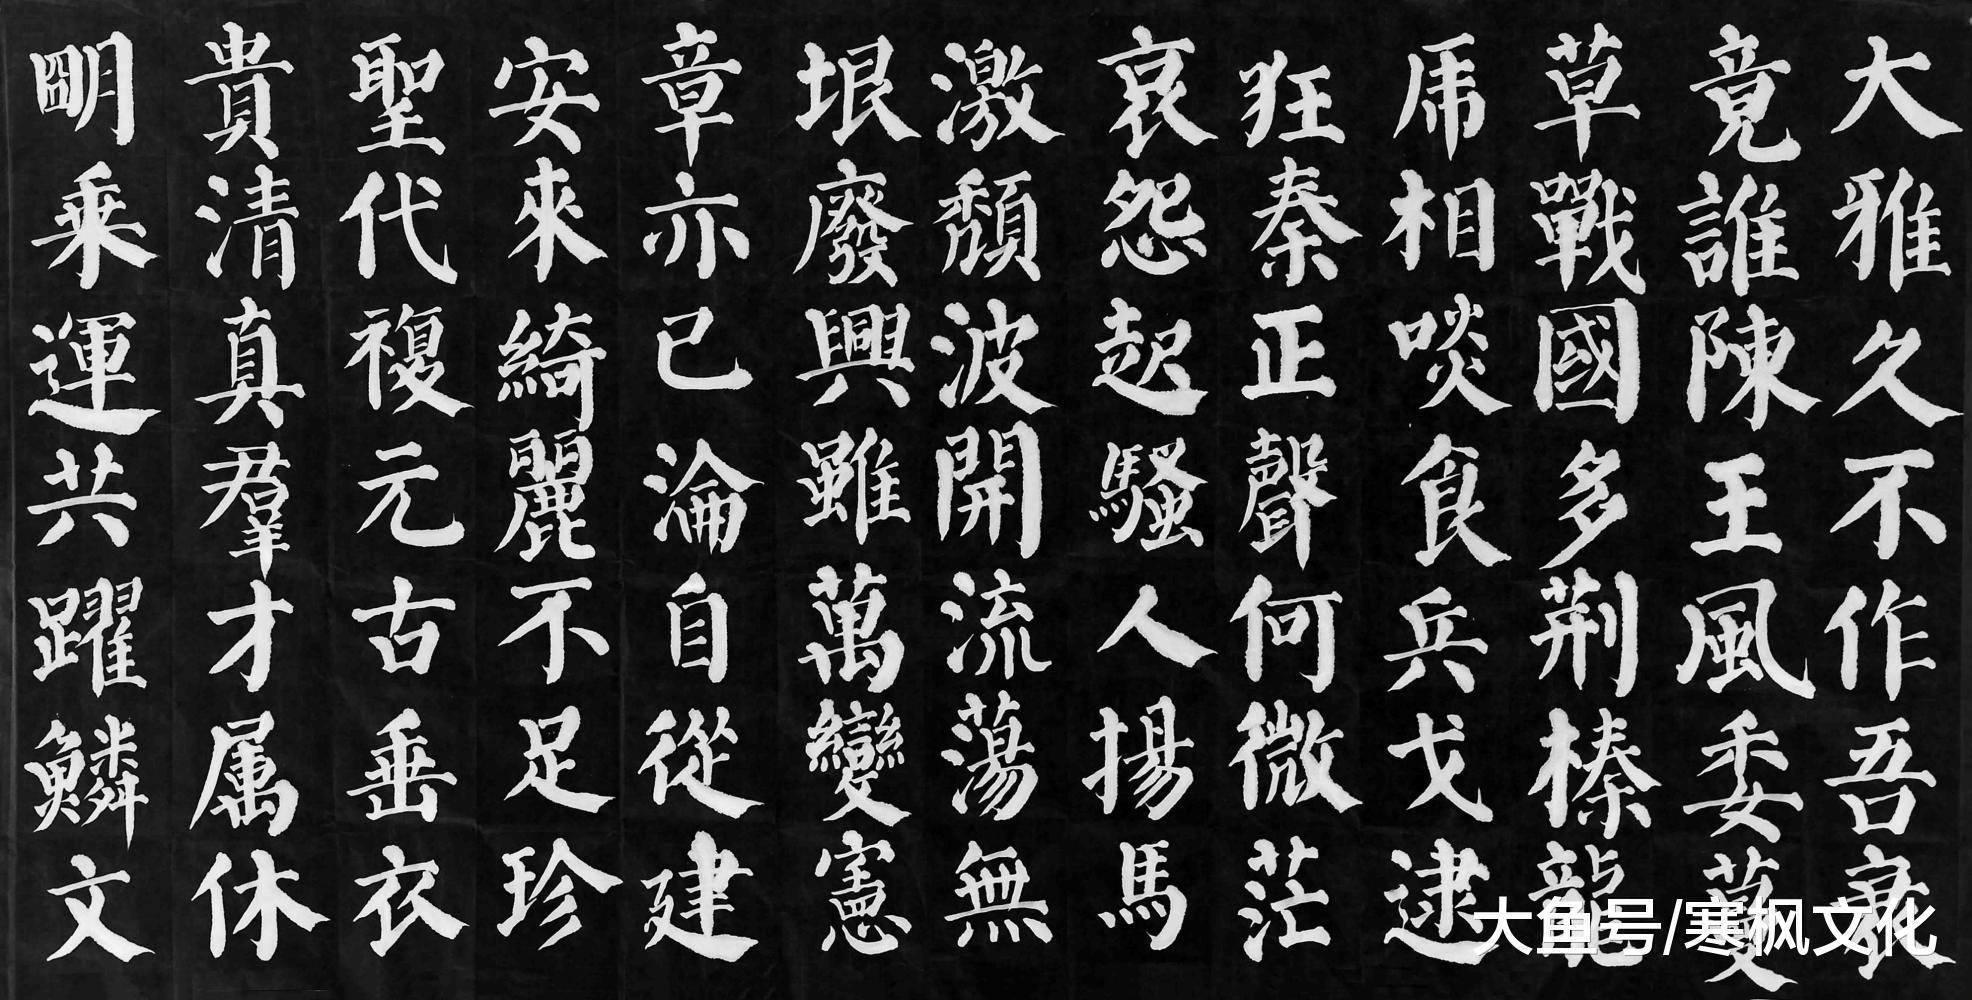 大雅久不作吾衰
竟誰陳王風委蔓
草戰國多荆榛龍
虎相啖食兵戈逮
狂秦正聲何微茫
哀怨起騷人揚馬
激頹波開流蕩無
垠廢興雖萬變憲
章亦已淪自從建
安來綺麗不足珍
聖代複元古垂衣
貴清真羣才属休
朙乗運共躍鱗文
大鱼号/寒枫文化